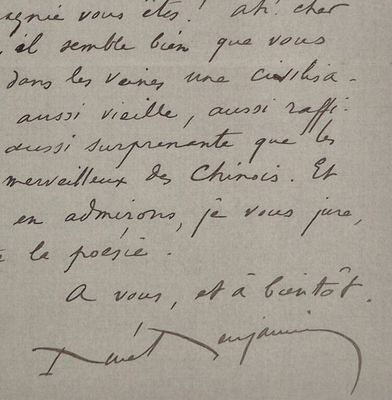 agnie vous êtes! Ah! cher
, il semble bien que vous
dans les veines une civilisa-
aussi vieille, aussi raffi-
aussi surprenante que les
merveilleux des Chinois. Et
en admirons, je vous jure,
la poésie.
A vous, et à bientôt.
René Benjamin